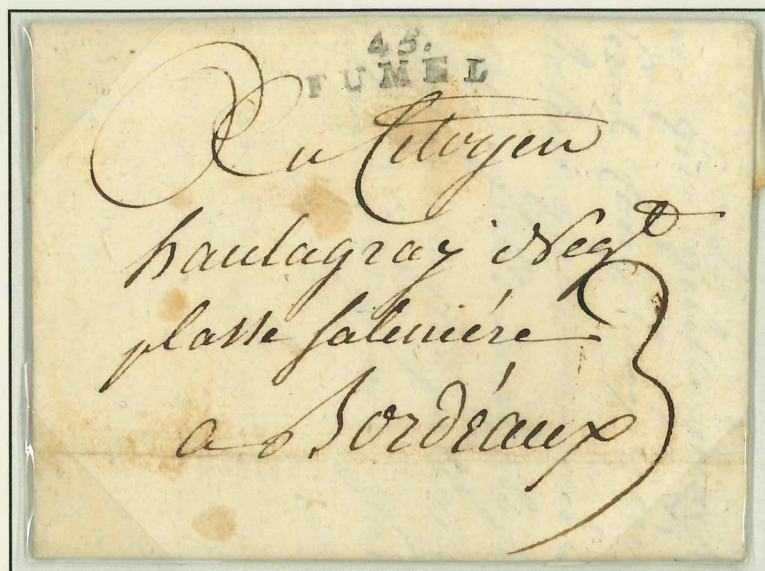 45.
FUMEL
Au Citoyen
hautagray Negt
plasse saleniére
a Bordéaux
3